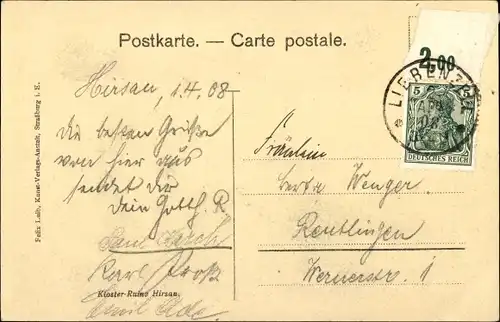 Postkarte. — Carte postale.
2,00
LIEBENZELL
5 5
DEUTSCHES REICH
Hirsau, 1.4.08
Die besten Grüße
von hier aus
sendet dir
dein Gotth. R.
Karl
Emil
Fräulein
Berta Wenger
Reutlingen
Wernerstr. 1
Kloster-Ruine Hirsau.
Felix Luib, Kunst-Verlags-Anstalt, Straßburg i. E.